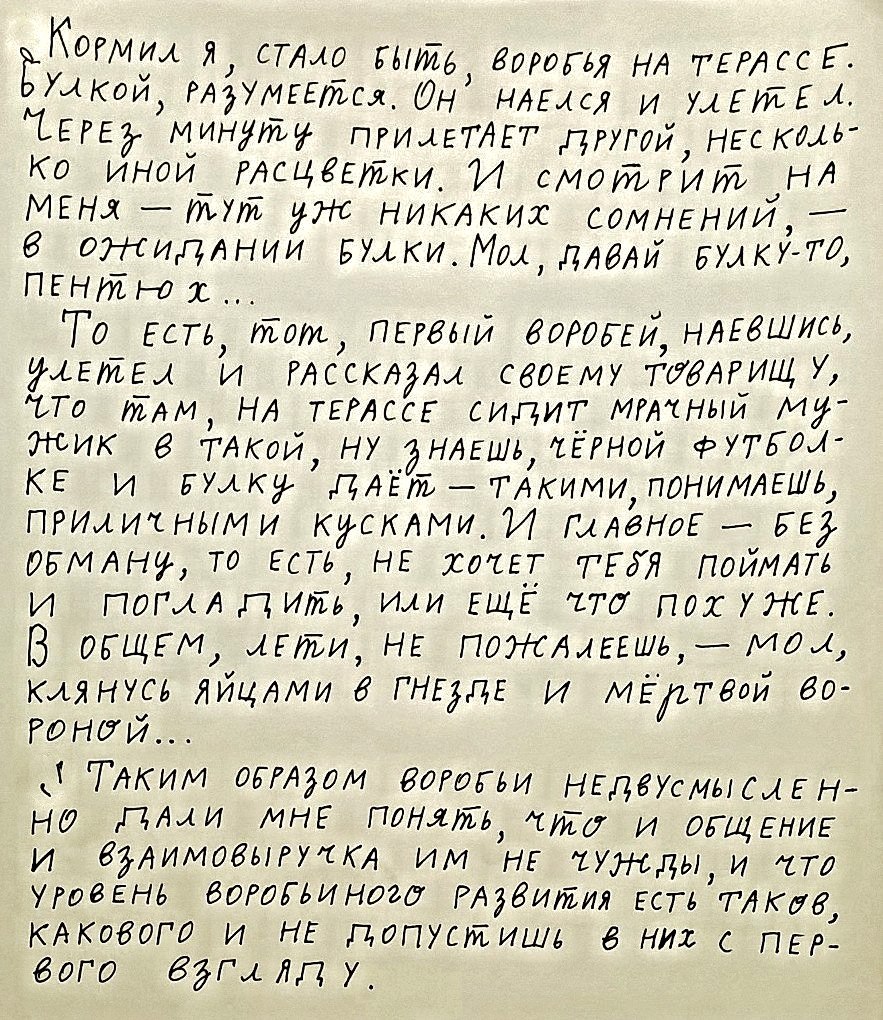 Кормил я, стало быть, воробья на терассе.
Булкой, разумеется. Он наелся и улетел.
Через минуту прилетает другой, несколь-
ко иной расцветки. И смотрит на
меня — тут уж никаких сомнений, —
в ожидании булки. Мол, давай булку-то,
пентюх...
То есть, тот, первый воробей, наевшись,
улетел и рассказал своему товарищу,
что там, на терассе сидит мрачный му-
жик в такой, ну знаешь, чёрной футбол-
ке и булку даёт — такими, понимаешь,
приличными кусками. И главное — без
обману, то есть, не хочет тебя поймать
и погладить, или ещё что похуже.
В общем, лети, не пожалеешь, — мол,
клянусь яйцами в гнезде и мёртвой во-
роной...
Таким образом воробьи недвусмыслен-
но дали мне понять, что и общение
и взаимовыручка им не чужды, и что
уровень воробьиного развития есть таков,
какового и не допустишь в них с пер-
вого взгляду.